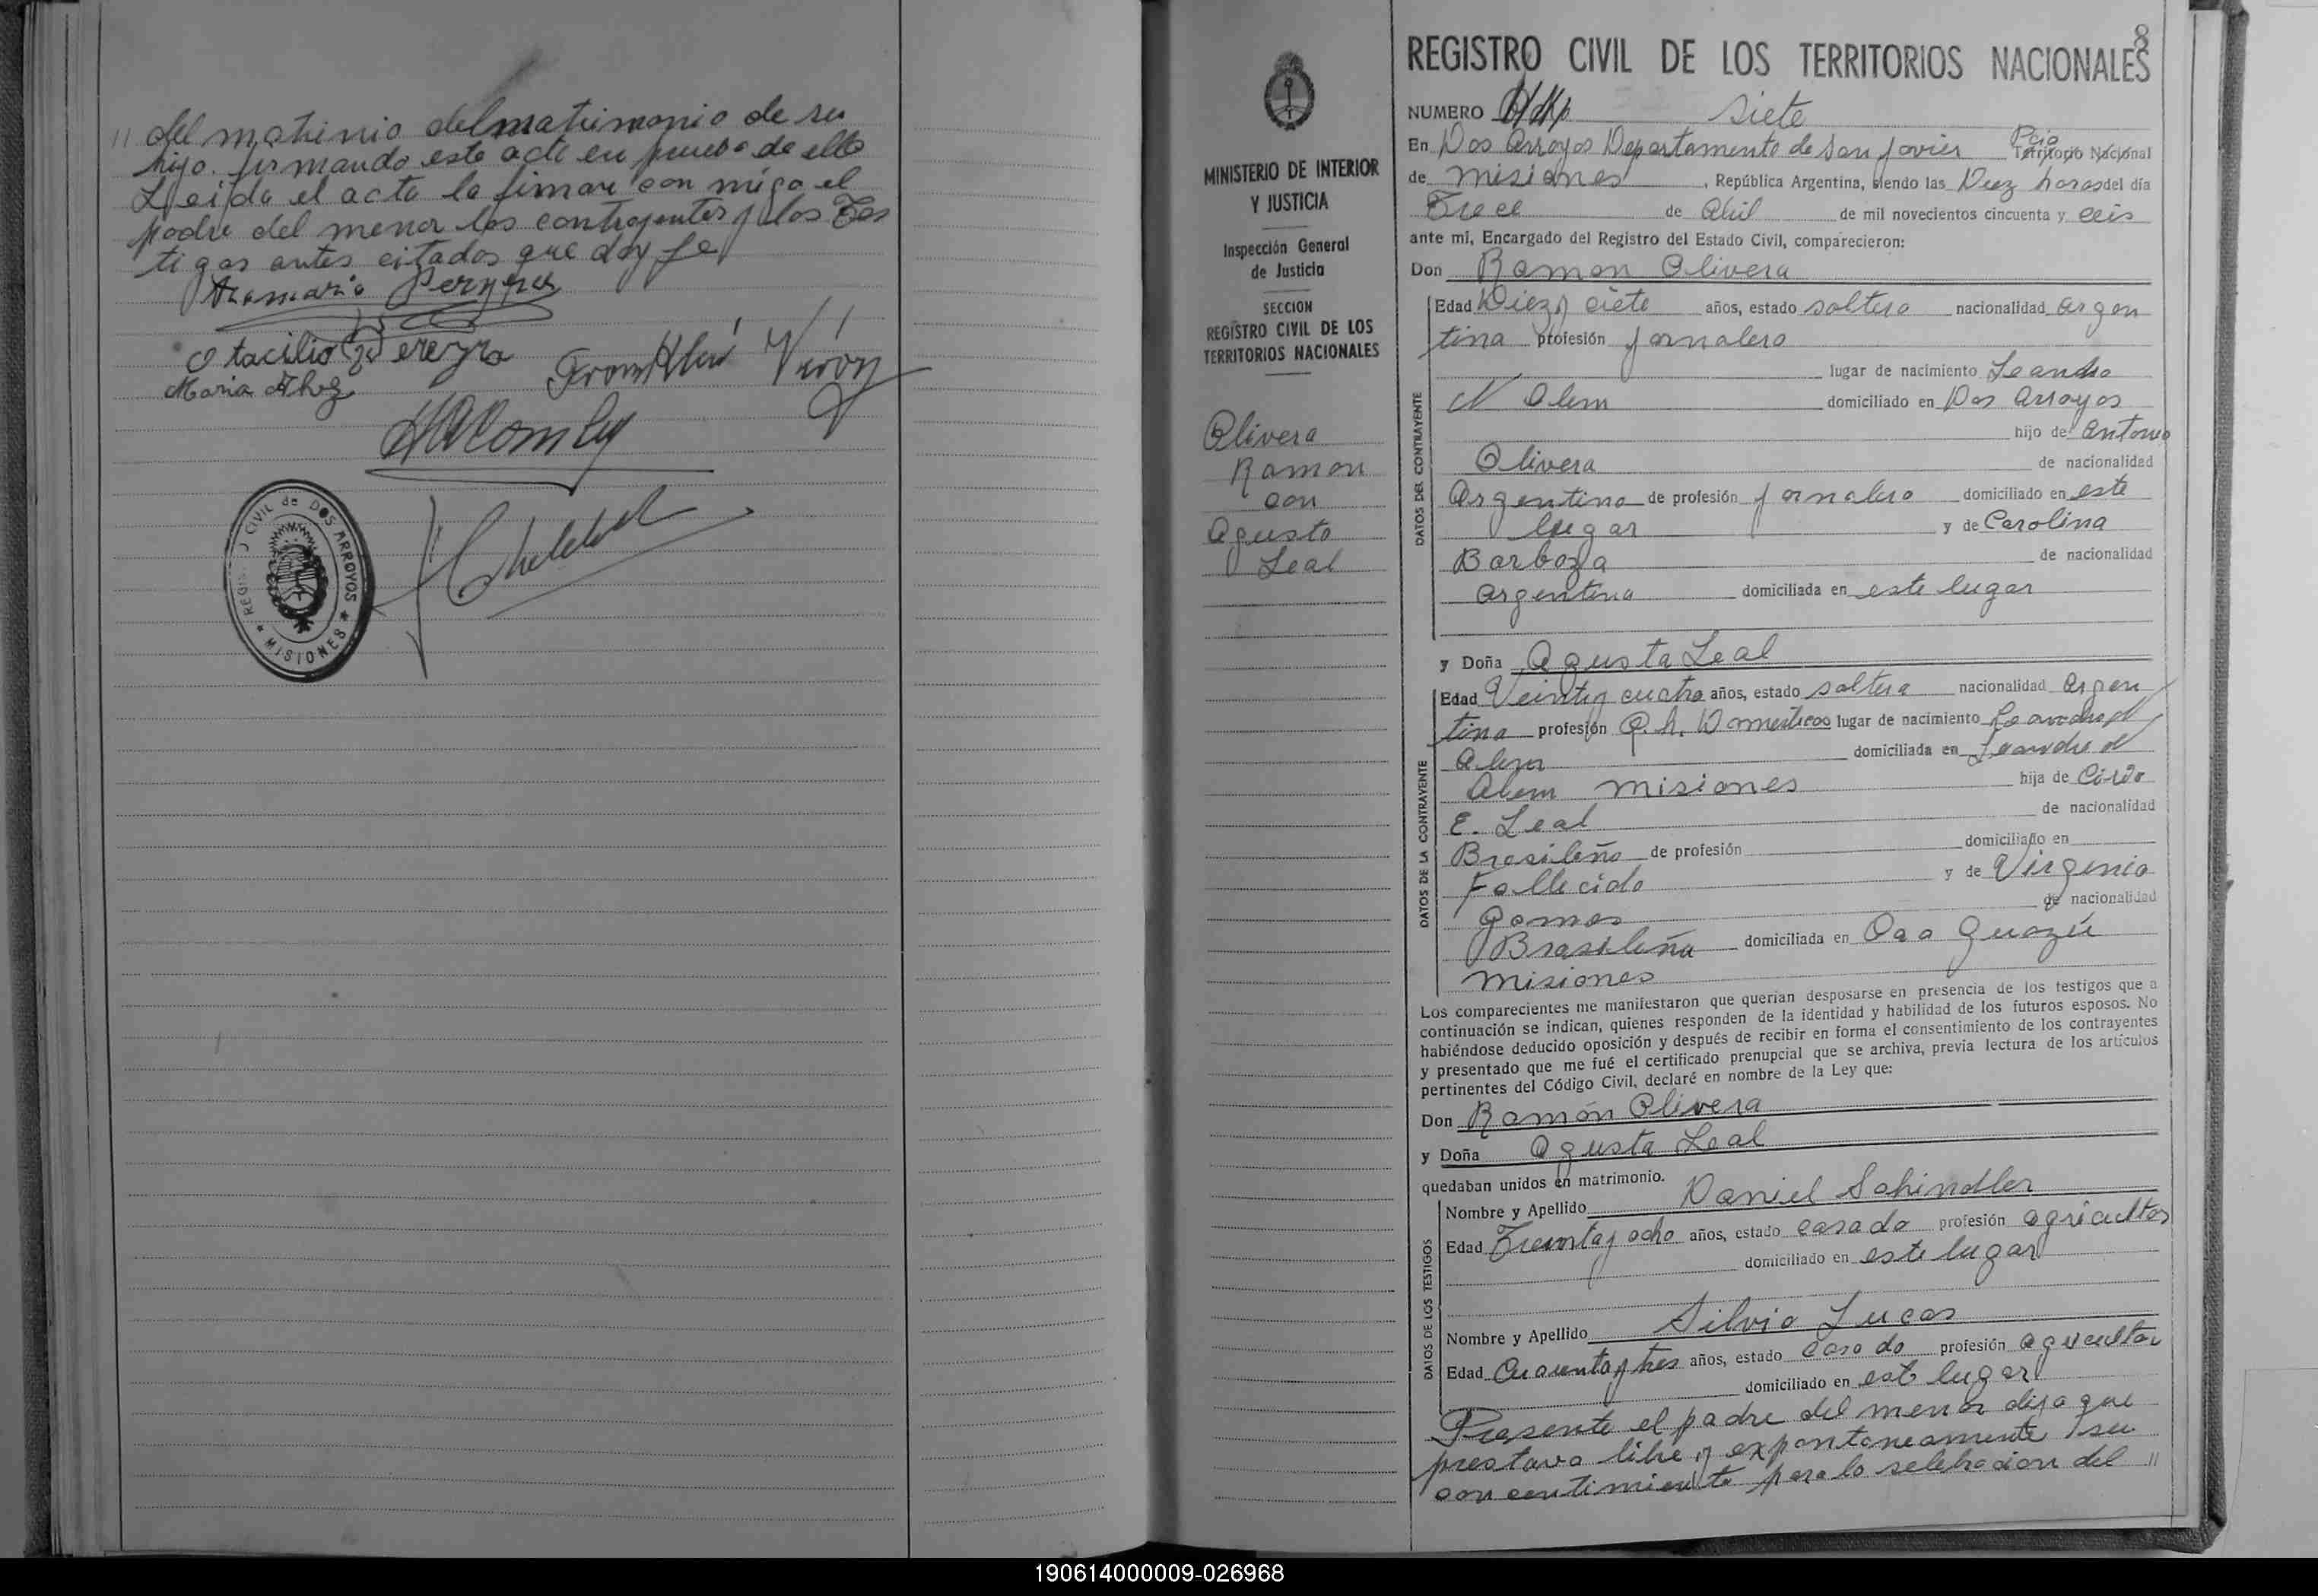 // del matrinio del matrimonio de su
hijo. firmando este acte en prueba de ello
Leida el acta la fimare con migo el
padre del menor los contrayentes y los Tes
tigos antes citados que doy fe
Otacilio Pereyra
Maria
Verón
REGISTRO CIVIL de DOS ARROYOS
* MISIONES *
8
REGISTRO CIVIL DE LOS TERRITORIOS NACIONALES
MINISTERIO DE INTERIOR
Y JUSTICIA
Inspección General
de Justicia
SECCION
REGISTRO CIVIL DE LOS
TERRITORIOS NACIONALES
Olivera
Ramon
con
Agusto
Leal
NUMERO siete
En Dos Arroyos Departamento de San Javier Pcia Territorio Nacional
de misiones, República Argentina, siendo las Diez horas del día
Trece de Abil de mil novecientos cincuenta y ceis
ante mí, Encargado del Registro del Estado Civil, comparecieron:
Don Ramon Olivera
DATOS DEL CONTRAYENTE
Edad Diez y ciete años, estado soltero nacionalidad argen
tina profesión jornalero
lugar de nacimiento Leandro
N Alem domiciliado en Dos Arroyos
hijo de Antonio
Olivera de nacionalidad
Argentino de profesión jornalero domiciliado en este
lugar y de Carolina
Barboza de nacionalidad
argentina domiciliada en este lugar
y Doña Agusta Leal
DATOS DE LA CONTRAYENTE
Edad Veinte y cuatro años, estado soltera nacionalidad Argen
tina profesión Q. h. Domesticos lugar de nacimiento Leandro N
Alem domiciliada en Leandro N
Alem misiones hija de
E. Leal de nacionalidad
Brasileño de profesión domiciliado en
Fallecido y de Virgenia
Gomes de nacionalidad
Brasileña domiciliada en Oaa Guazú
misiones
Los comparecientes me manifestaron que querían desposarse en presencia de los testigos que a
continuación se indican, quienes responden de la identidad y habilidad de los futuros esposos. No
habiéndose deducido oposición y después de recibir en forma el consentimiento de los contrayentes
y presentado que me fué el certificado prenupcial que se archiva, previa lectura de los artículos
pertinentes del Código Civil, declaré en nombre de la Ley que:
Don Ramón Olivera
y Doña Agusta Leal
quedaban unidos en matrimonio.
DATOS DE LOS TESTIGOS
Nombre y Apellido Daniel Schindler
Edad Treinta y ocho años, estado casado profesión agricultor
domiciliado en este lugar
Nombre y Apellido Silvio Lucas
Edad Cuarenta y tres años, estado casado profesión agricultor
domiciliado en este lugar
Presente el padre del menor dijo que
prestava libre y expontaneamente su
concentimiento para la selebracion del //
190614000009-026968